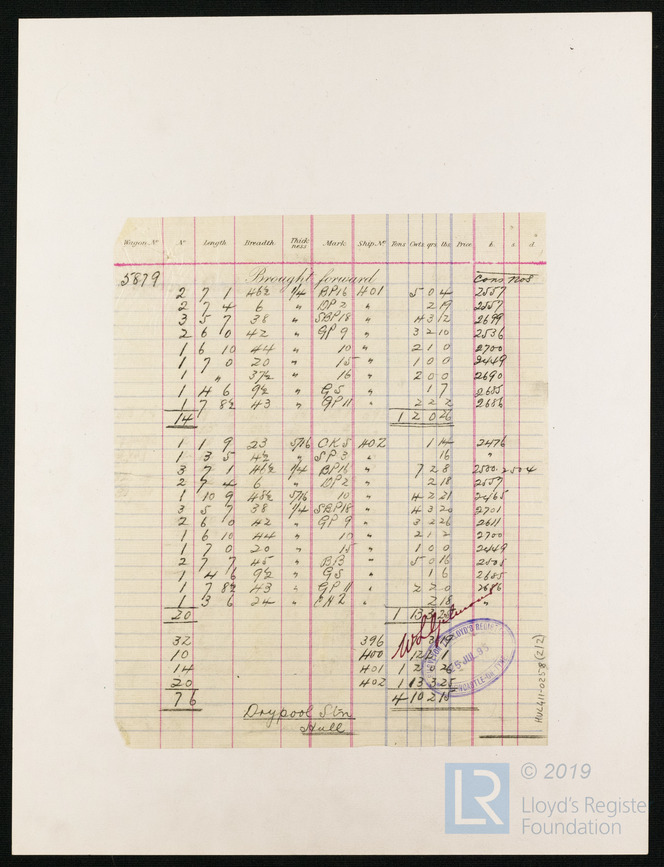 Wagon No No Length Breadth Thickness Mark Ship No Tons Cwts qrs lbs Price £ s. d.
5879 Brought forward Cons Nos
2 7 1 46½ 1/4 BP16 401 5 0 4 2557
2 7 4 6 " DP2 " 2 19 2557
3 5 7 38 " SBP18 " 4 3 12 2699
2 6 0 42 " GP 9 " 3 2 10 2536
1 6 10 44 " 10 " 2 1 0 2700
1 7 0 20 " 15 " 1 0 0 2449
1 " 37½ " 16 " 2 0 0 2690
1 4 6 9½ " GS " 1 7 2685
1 7 8½ 43 " GP11 " 2 2 2 2686
14 1 2 0 26
1 1 9 23 5/16 CK5 402 1 14 2476
1 3 5 4½ " SP3 " 16 "
3 7 1 46½ 1/4 BP16 " 7 2 8 2500.2504
2 7 4 6 " DP2 " 2 18 2557
1 10 9 48½ 5/16 10 " 4 2 21 2465
3 5 7 38 1/4 SBP18 " 4 3 20 2701
2 6 0 42 " GP 9 " 3 2 26 2611
1 6 10 44 " 10 " 2 1 2 2700
1 7 0 20 " 15 " 1 0 0 2449
2 7 7 45 " BB " 5 0 16 2505
1 4 6 9½ " GS " 1 6 2685
1 7 8½ 43 " GP 11 " 2 2 0 2686
1 3 6 24 " CH2 " 2 18 "
20 1 13 3 25
32 396 3 19
10 400 12 2 1
14 401 1 2 0 26
20 402 1 13 3 25
76 4 10 2 15
LLOYD'S REGISTER
25 JUL 95
NEWCASTLE-ON-TYNE
Drypool Stn
Hull
HUL411-0258(2/2)
© 2019
LR
Lloyd's Register
Foundation